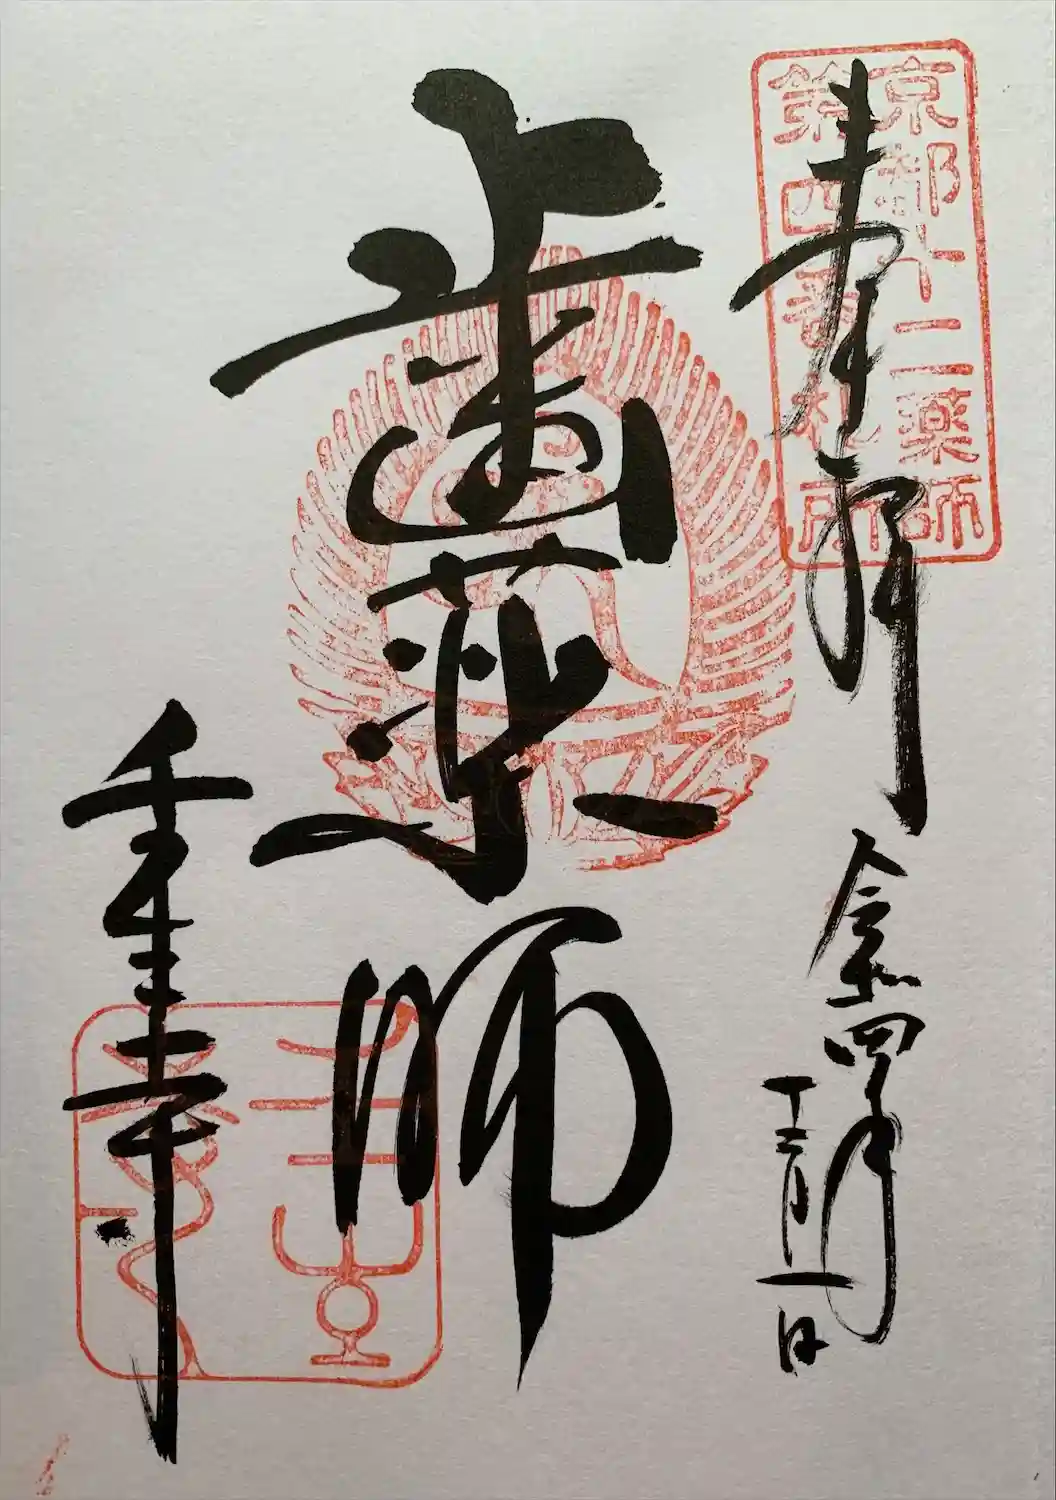 京都十二薬師
第四番札所
奉拝
令和四年
十二月一日
歯薬師
壬生寺